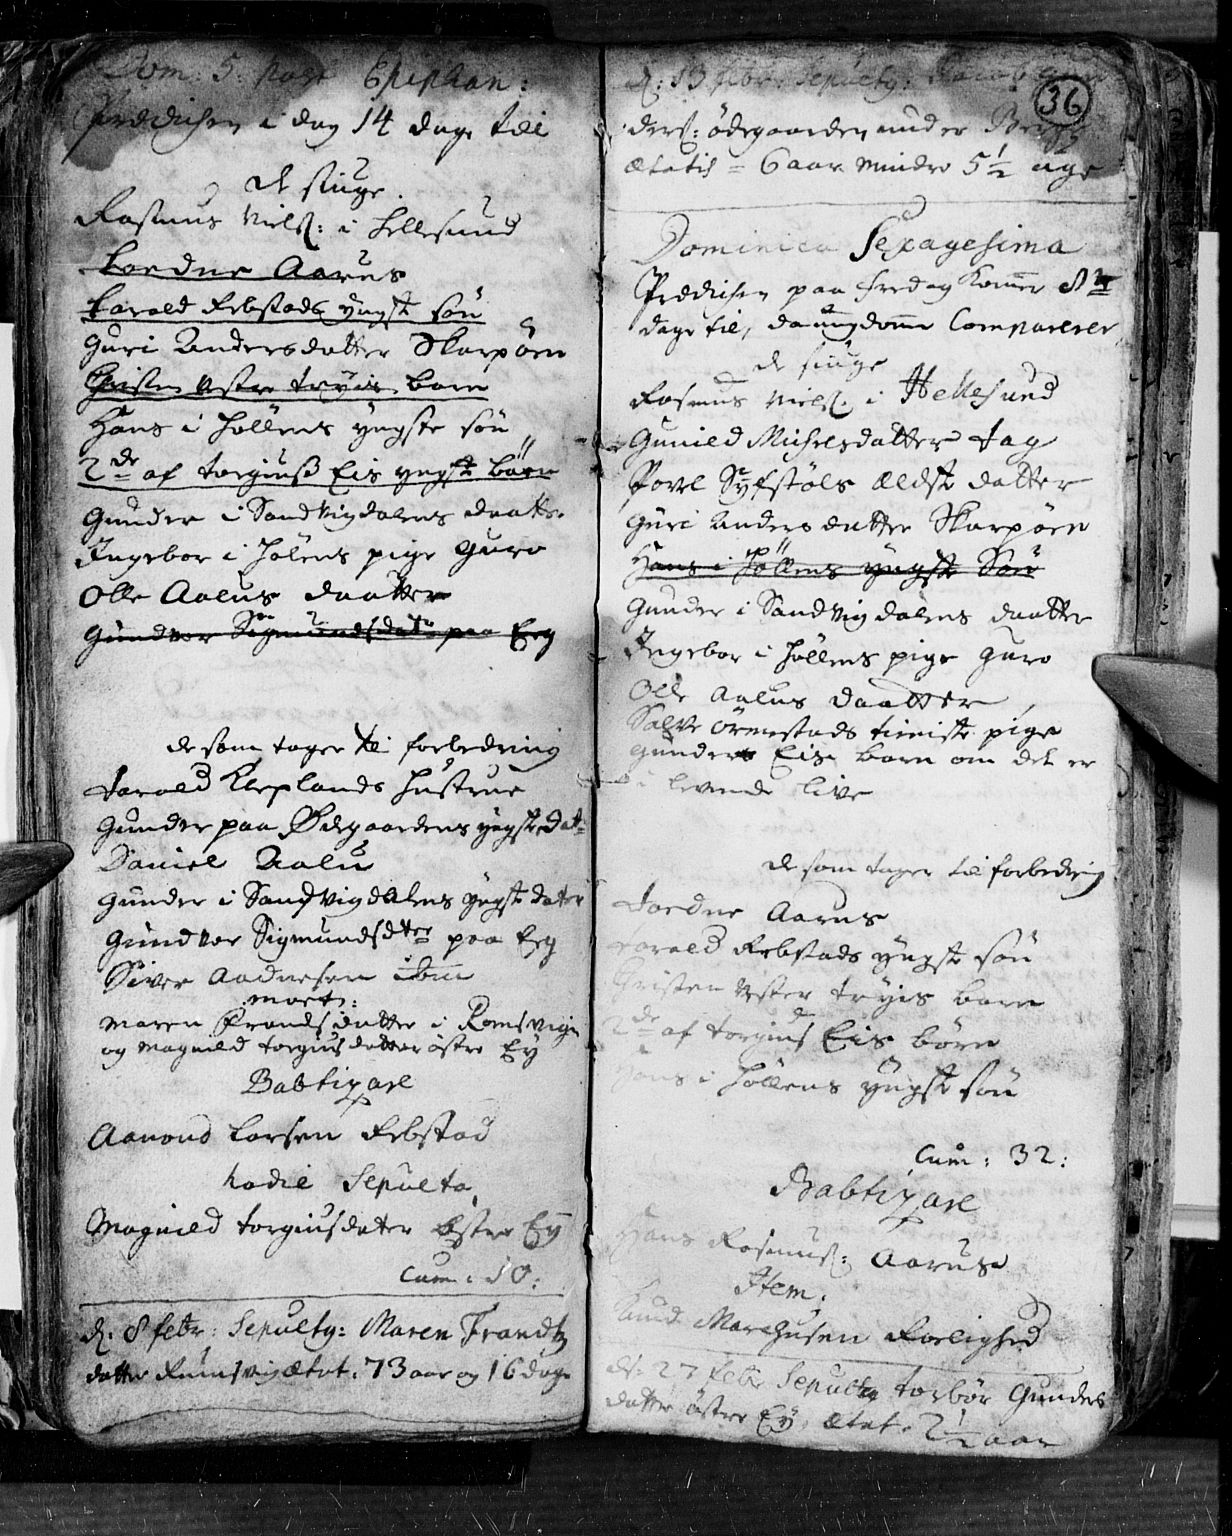 Dom: 5. post Epiphan:
Prædichen i dag 14 dage till
de siuge.
Rasmus Niels: i Hellesund
Tordne Aarus
Tarald Rebstads yngst sön
Guri Andersdatter Skarpöen
Christen Vstre Tryis barn
Hans i Höllens yngste sön
2de af Torgius Eis yngst börn
Gunder i Sandvigdalens daatter
Ingebor i Hölens pige Guro
Olle Aalus daatter
Gundvor Sigmundsdatr paa Eeg
de som tager til forbedring
Tarald Kleplands Hustrue
Gunder paa Ødegaardens yngste dat
Daniel Aalu
Gunder i Sandvigdalens yngst dater
Gundvor Sigmundsdter paa Eeg
Siver Aadnesen ibm
mort:
Maren Frandsdatter i Romsvigen
og Magnild Torgiusdatter östre Ey
Babtizare
Aanond Larsen Rebstad
hodie Sepulta
Magnild Torgiusdater Østre Ey
Cum: 10:
d. 8 febr: Sepulty: Maren Frandtz
datter Rumsvig ætat: 73 aar og 16 dage
36
d: 13 febr: Sepulty: Jacob
ders: ödegaarden under Berge
ætatis = 6 aar mindre 5 1/2 uge
Dominica Sexagesima
Prædichen paa fredag kommer 8te
dage til, da ungdomme Comparerer
de siuge
Rasmus Niels: i Hellesund
Gunild Michelsdatter Tag
Povel Syfstöls ældst datter
Guri Anders datter Skarpöen
Hans i Höllens yngst Sön
Gunder i Sandvigdalens daatter
Ingebor i Höllens pige Guro
Olle Aalus daatter
Salve Örmestads tieniste pige
Gunders Eis barn om det er
i levende live
de som tager til forbedring
Tordne Aarus
Tarald Rebstads yngst sön
Christen Vster Tryis barn
2de af Torgius Eis börn
Hans i Höllens yngst sön
Cum: 32:
Babtizare
Hans Rasmus: Aarus
Item:
Knud Marchusen Roelighed
d: 27 febr Sepulty Torbör Gunders
datter östre Ey, ætat. 2 1/2 aar